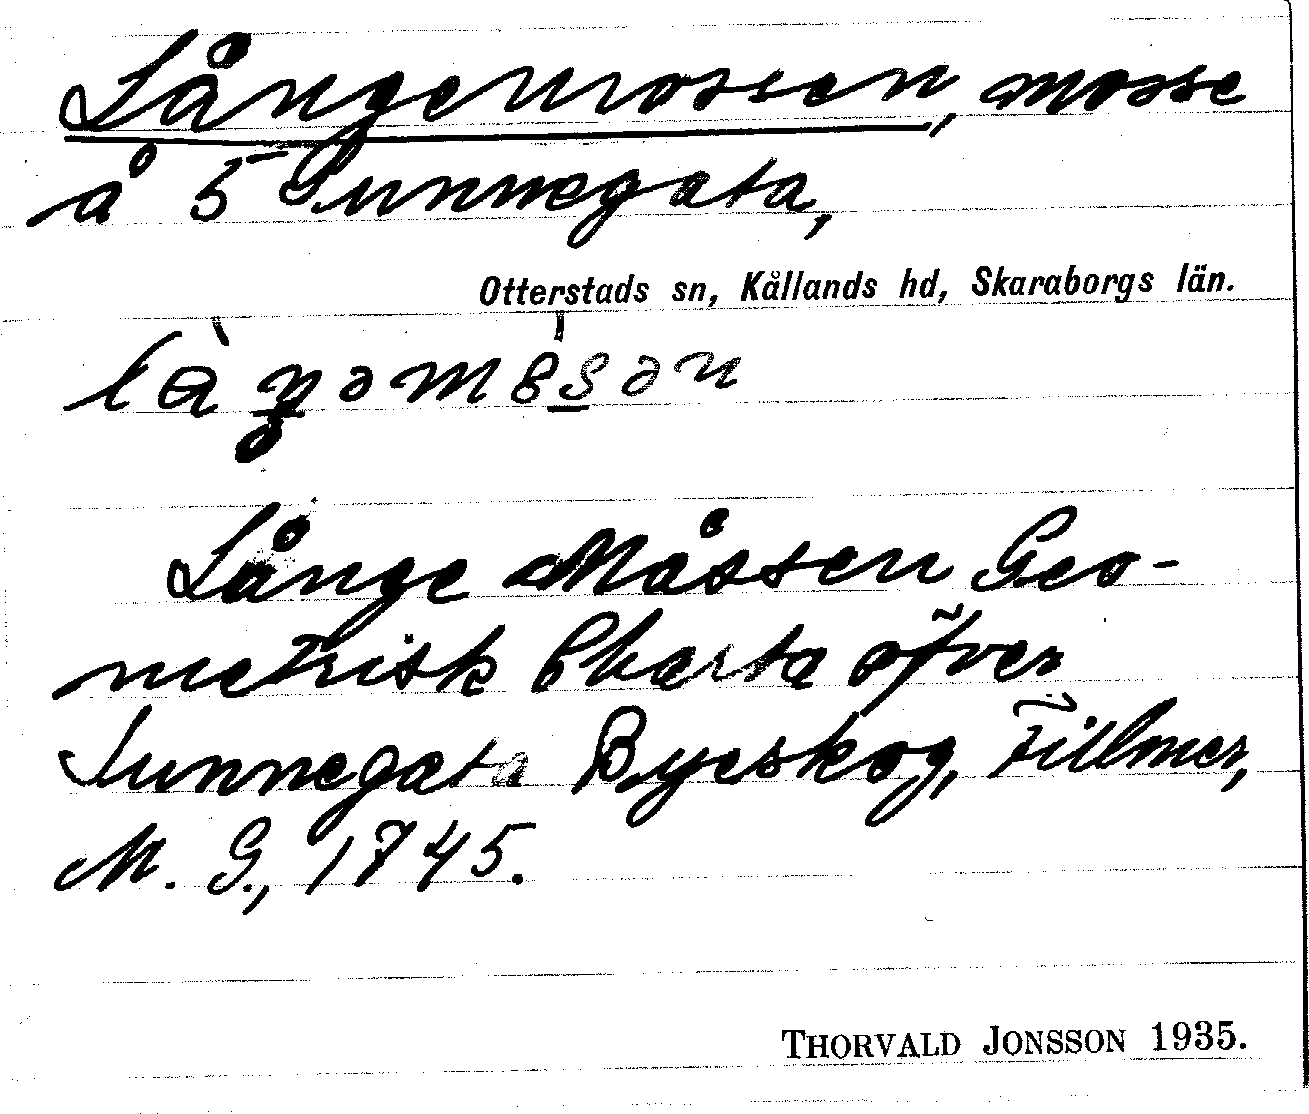 Långemossen, mosse
å 5 Sunnegata,
Otterstads sn, Kållands hd, Skaraborgs län.
Långe Måssen Geo-
metrisk Charta öfver
Sunnegata Byeskog, Fillmer,
M. G., 1745.
THORVALD JONSSON 1935.